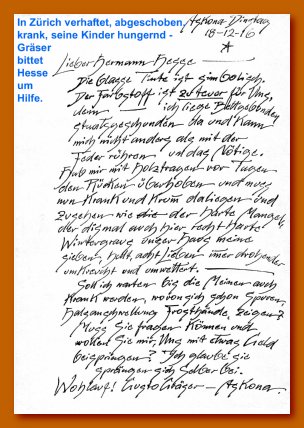 In Zürich verhaftet, abgeschoben,
krank, seine Kinder hungernd -
Gräser
bittet
Hesse
um
Hilfe.
Askona. Dinstag
18-12-16
Lieber Hermann Hesse —
Die Blasse Tinte ist
Der Farbstoff ist zu teuer für Uns,
denn ich liege Bettgebunden
da und Kann
mich nicht anders als mit der
Feder rühren das Nötige.
Hab mir mit Holztragen vor Tagen
den Rücken überhoben und muss
nun Krank und Krum daliegen und
zusehen wie die der Harte Mangel,
der dismal auch hier recht Harte
Wintergraus unser Haus meine
sieben, acht Lieben imer drohender
umkreicht und umwettert. —
Soll ich warten bis die Meinen auch
Krank werden, wovon sich schon Spuren,
Halsanschwellung Frosthände, zeigen?
Muss Sie fragen Können und
wollen Sie mir, Uns mit etwas Geld
beispringen? Ich glaube sie
springen sich Selber bei.
Wohlauf! Gusto Gräser — Askona.